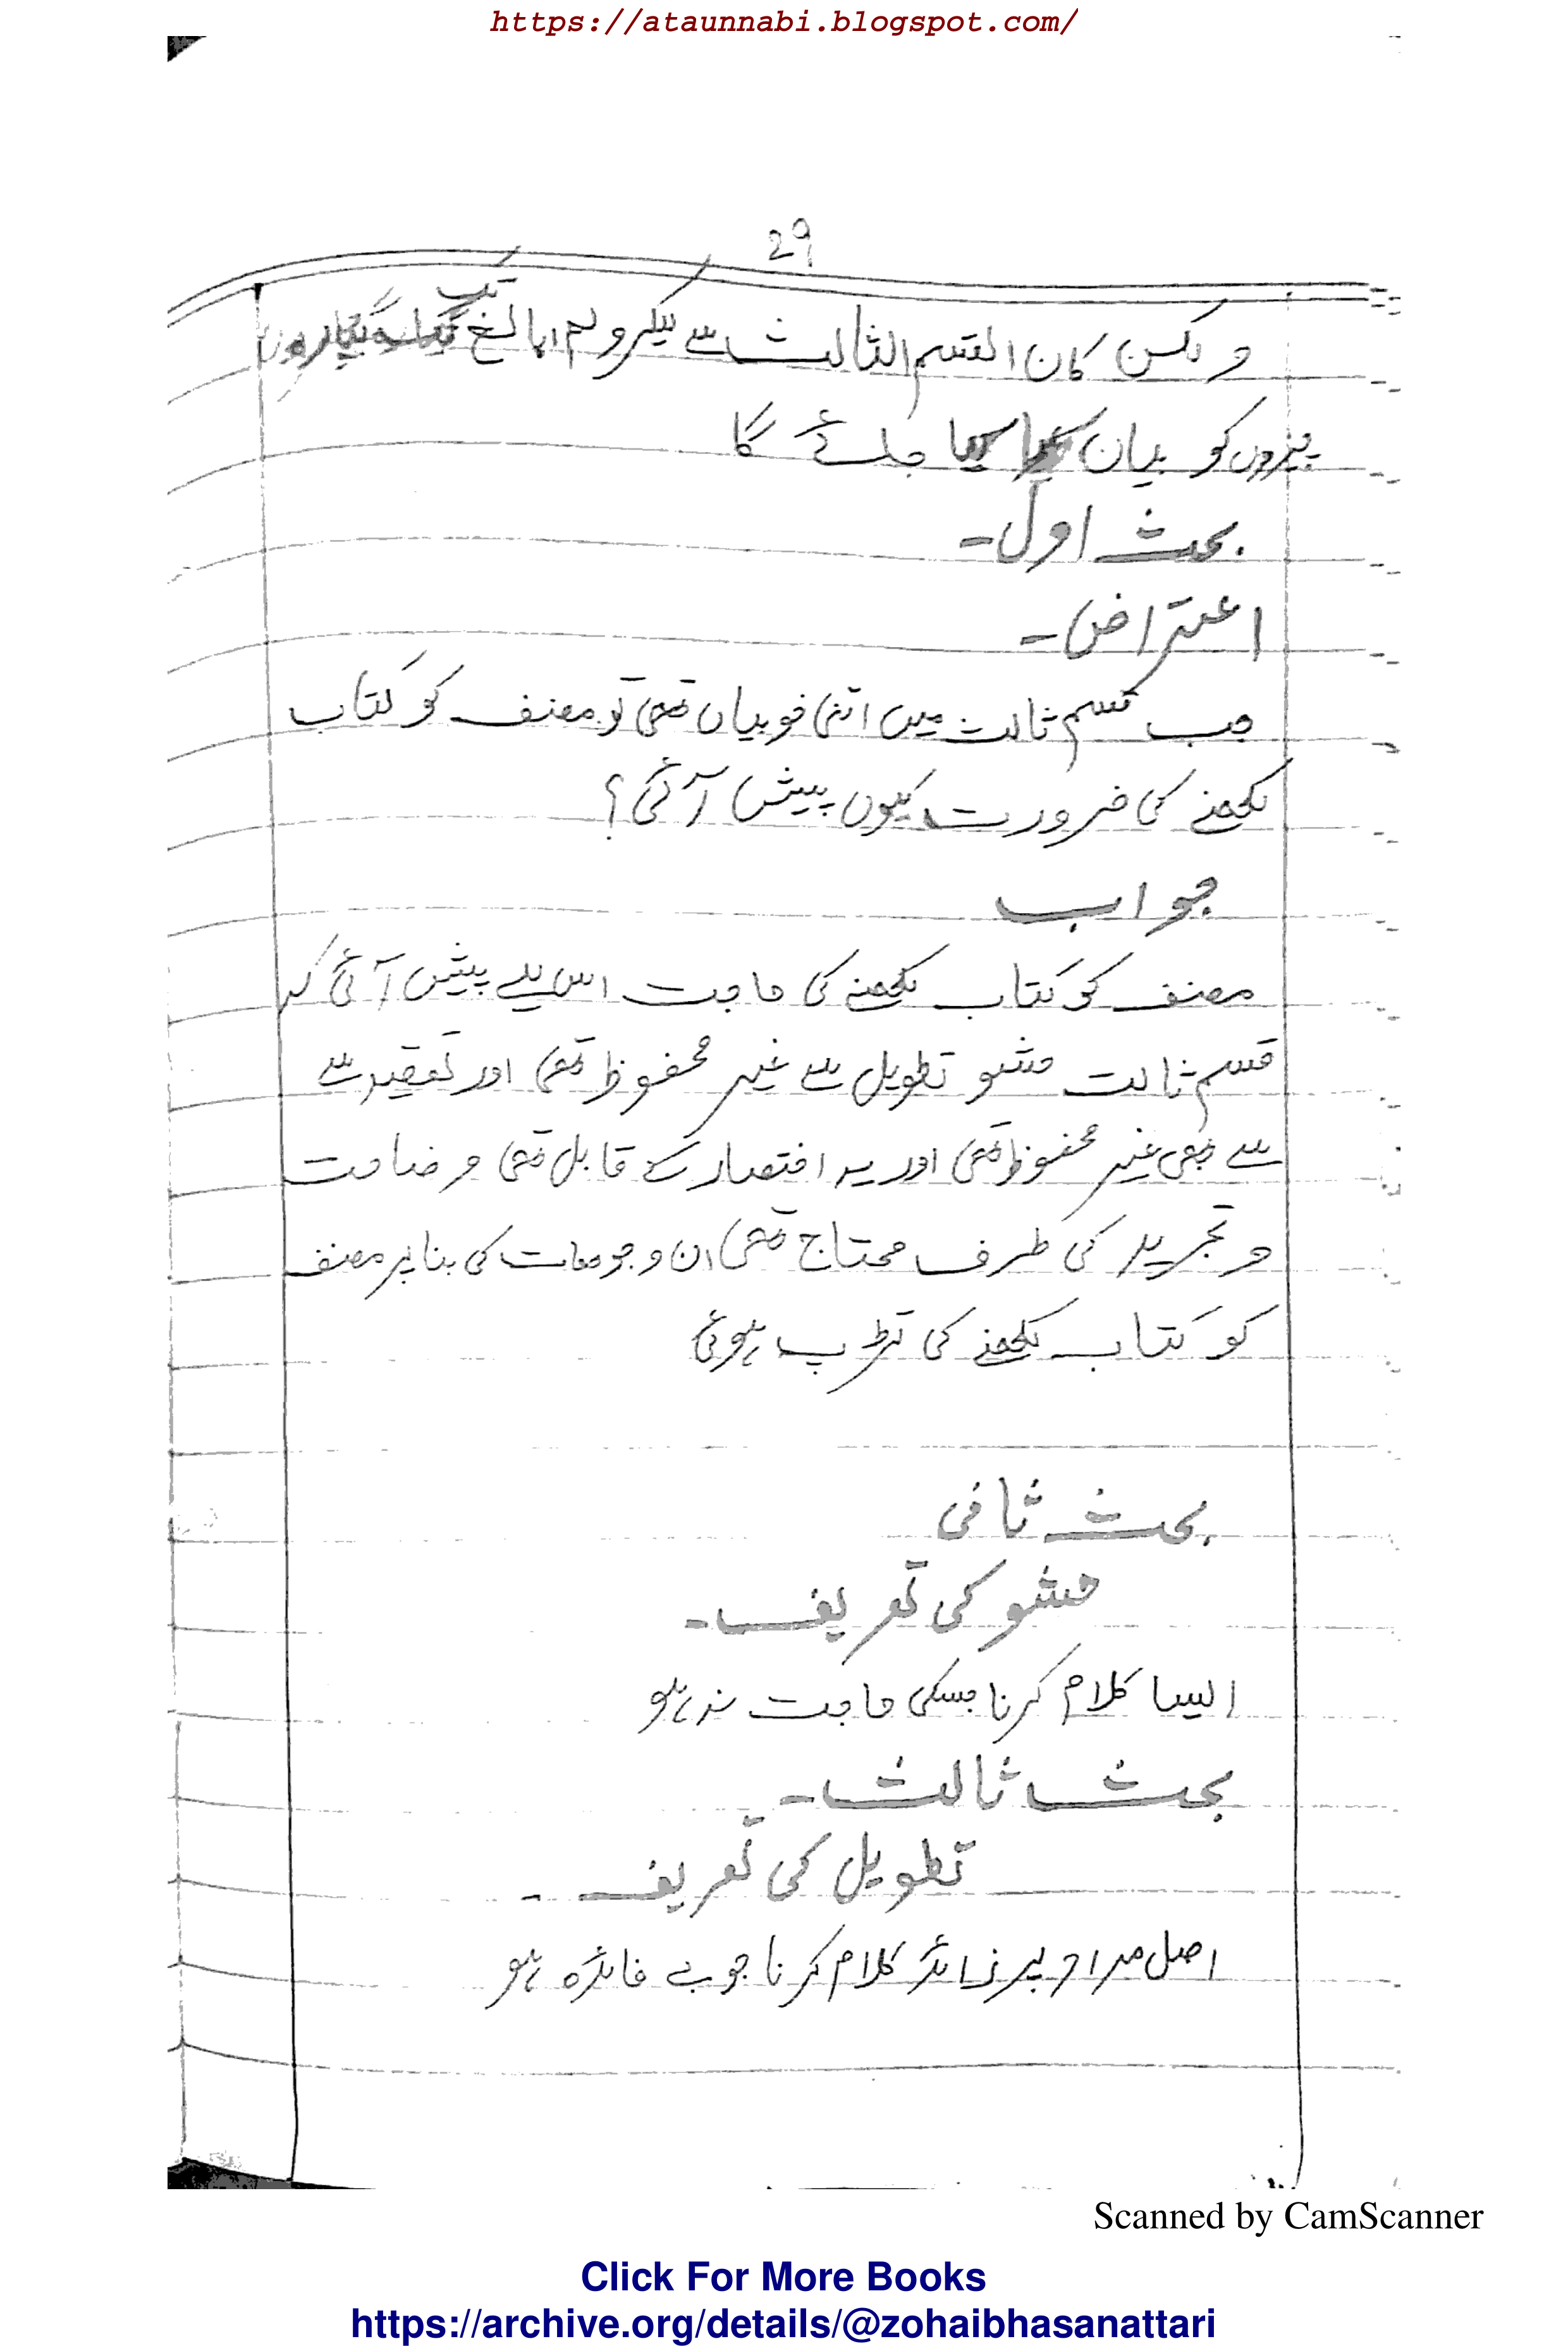 https://ataunnabi.blogspot.com/
29
و لکن کان القسم الثالث سے لیکر ولم ابالغ تک گیارہ
چیزوں کو بیان کیا جائے گا
بحث اول۔
اعتراض۔
جب قسم ثالث میں اتنی خوبیاں تھی تو مصنف کو کتاب
لکھنے کی ضرورت کیوں پیش آئی؟
جواب
مصنف کو کتاب لکھنے کی حاجت اس لیے پیش آئی کہ
قسم ثالث حشو تطویل سے غیر محفوظ تھی اور تعقید سے
سے بھی غیر محفوظ تھی اور یہ اختصار کے قابل تھی وضاحت
و تجرید کی طرف محتاج تھی ان وجوہات کی بنا پر مصنف
کو کتاب لکھنے کی تڑپ ہوئی
بحث ثانی
حشو کی تعریف۔
ایسا کلام کرنا جسکی حاجت نہ ہو
بحث ثالث۔
تطویل کی تعریف۔
اصل مراد پر زائد کلام کرنا جو بے فائدہ ہو
Scanned by CamScanner
Click For More Books
https://archive.org/details/@zohaibhasanattari